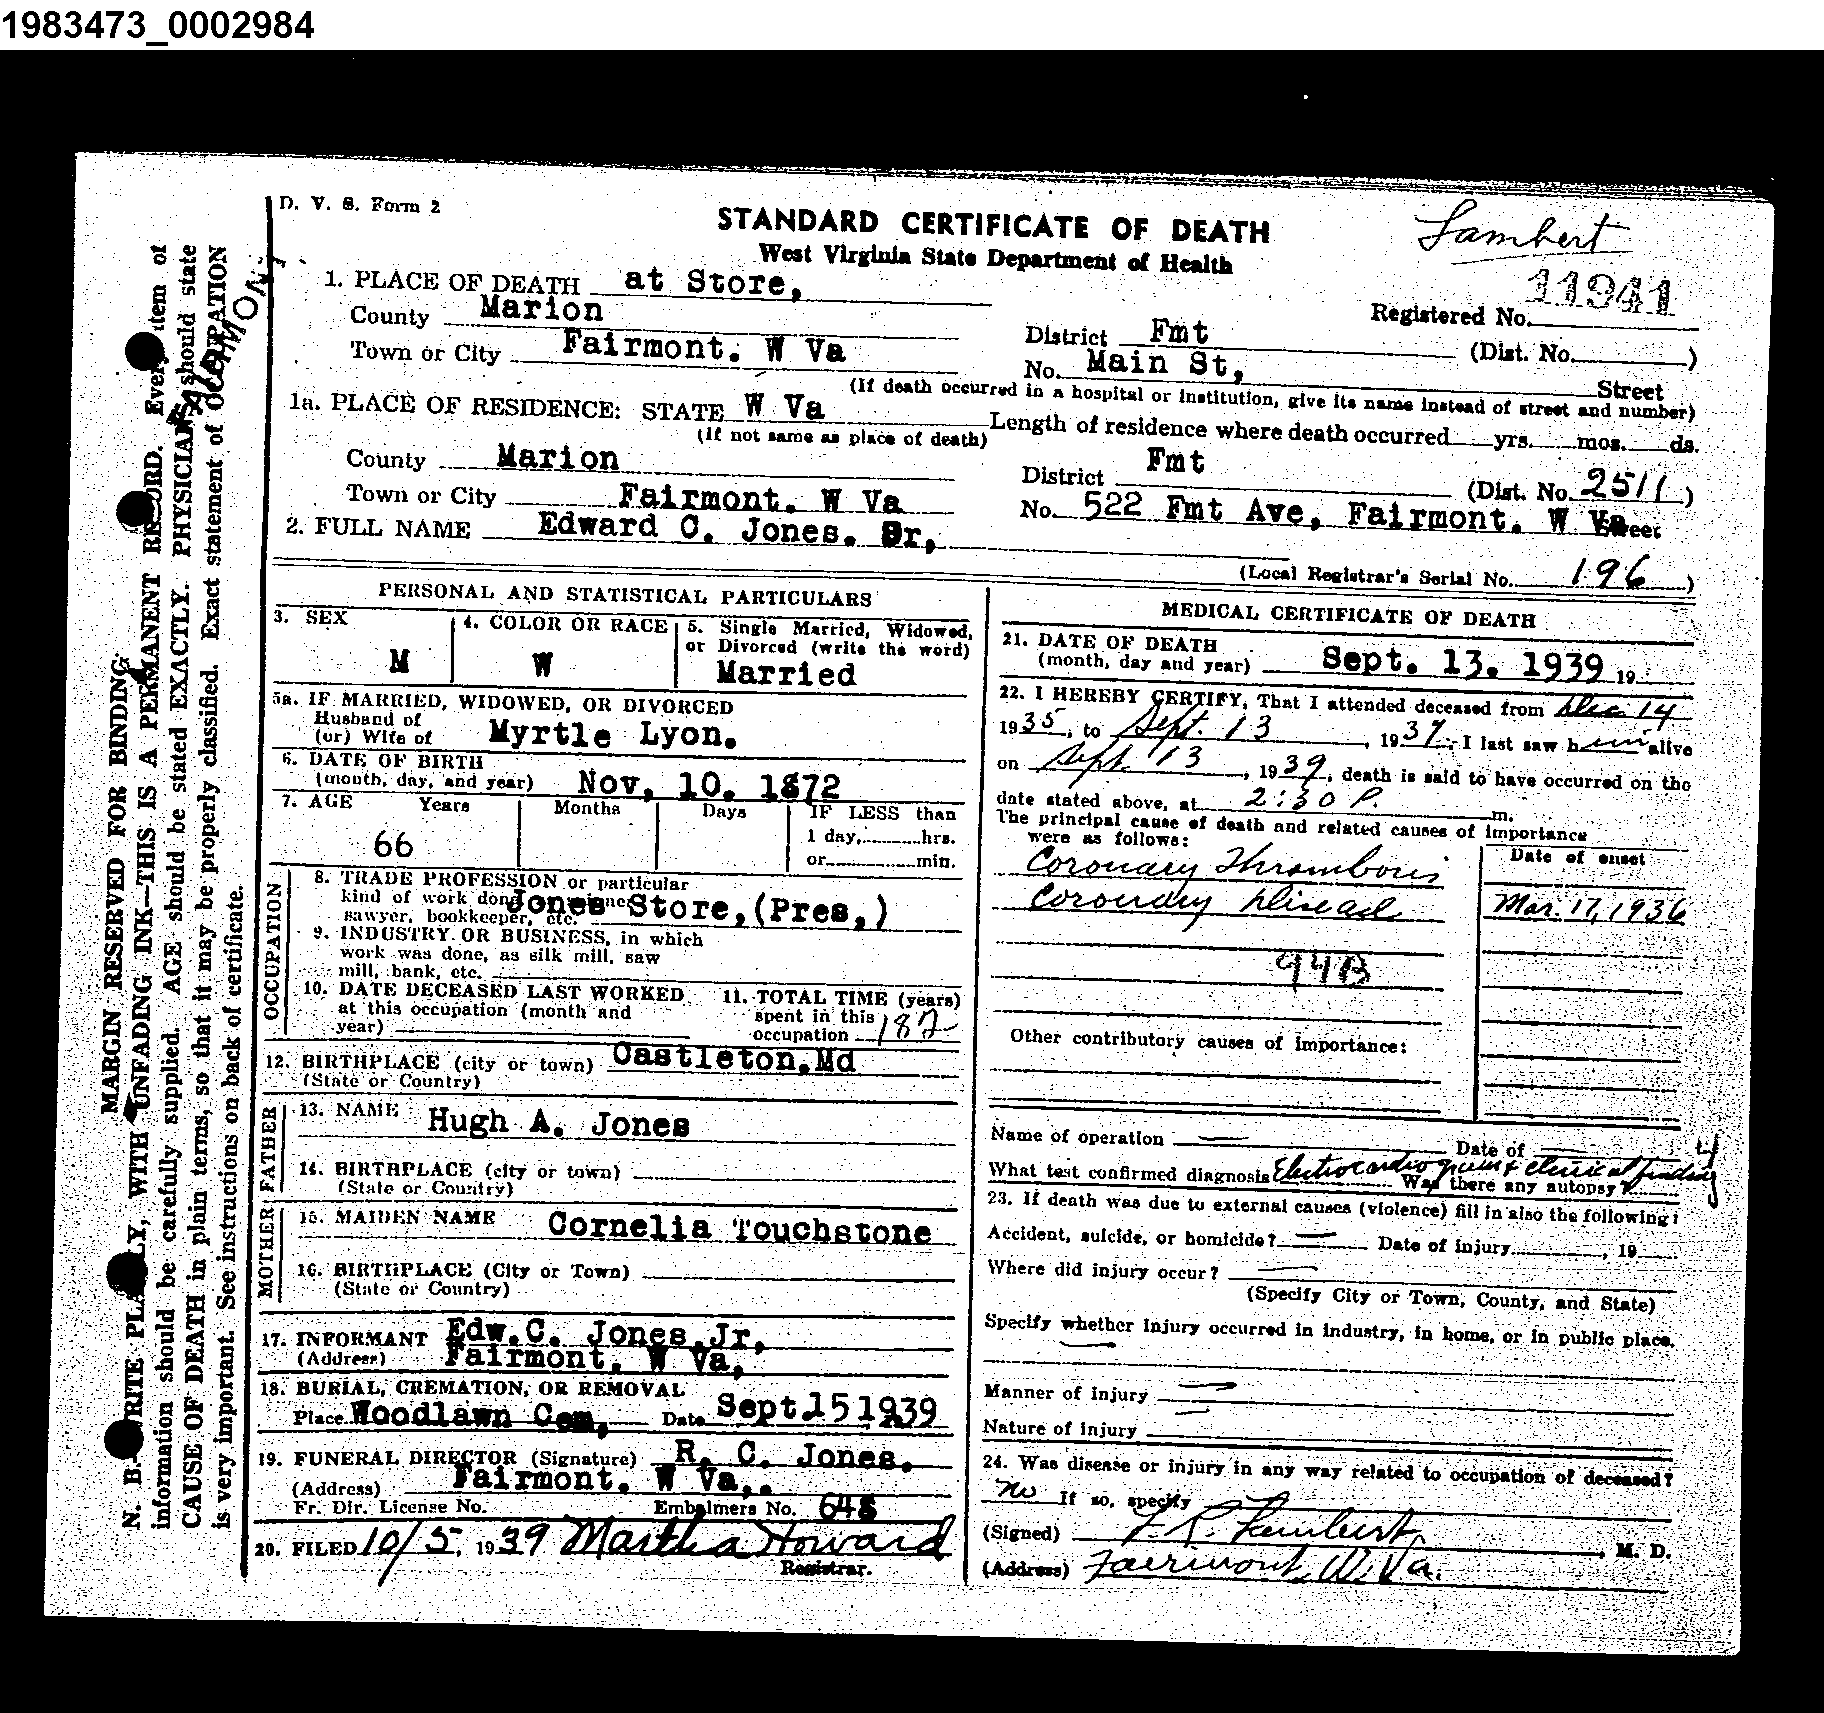 1983473_0002984
D. V. S. Form 2
STANDARD CERTIFICATE OF DEATH
West Virginia State Department of Health
Lambert
11941
1. PLACE OF DEATH at Store,
County Marion
Registered No.
Town or City Fairmont. W Va
District Fmt (Dist. No. )
No. Main St, Street
(If death occurred in a hospital or institution, give its name instead of street and number)
1a. PLACE OF RESIDENCE: STATE W Va
(If not same as place of death)
Length of residence where death occurred yrs. mos. ds.
County Marion
District Fmt (Dist. No. 2511)
Town or City Fairmont. W Va
No. 522 Fmt Ave, Fairmont. W Va Street
2. FULL NAME Edward C. Jones. Sr,
(Local Registrar's Serial No. 196)
PERSONAL AND STATISTICAL PARTICULARS
3. SEX
M
4. COLOR OR RACE
W
5. Single Married, Widowed,
or Divorced (write the word)
Married
5a. IF MARRIED, WIDOWED, OR DIVORCED
Husband of
(or) Wife of Myrtle Lyon.
6. DATE OF BIRTH
(month, day, and year) Nov, 10. 1872
7. AGE Years Months Days IF LESS than
1 day, hrs.
or min.
66
OCCUPATION
8. TRADE PROFESSION or particular
kind of work done
sawyer, bookkeeper, etc. Jones Store,(Pres,)
9. INDUSTRY OR BUSINESS, in which
work was done, as silk mill, saw
mill, bank, etc.
10. DATE DECEASED LAST WORKED
at this occupation (month and
year)
11. TOTAL TIME (years)
spent in this
occupation
12. BIRTHPLACE (city or town) Castleton,Md
(State or Country)
FATHER
13. NAME Hugh A. Jones
14. BIRTHPLACE (city or town)
(State or Country)
MOTHER
15. MAIDEN NAME Cornelia Touchstone
16. BIRTHPLACE (City or Town)
(State or Country)
17. INFORMANT Edw.C. Jones,Jr,
(Address) Fairmont. W Va,
18. BURIAL, CREMATION, OR REMOVAL
Place Woodlawn Cem, Date Sept.15 1939
19. FUNERAL DIRECTOR (Signature) R. C. Jones.
(Address) Fairmont. W Va,.
Fr. Dir. License No. Embalmers No. 648
20. FILED 10/5, 1939 Martha Howard
Registrar.
MEDICAL CERTIFICATE OF DEATH
21. DATE OF DEATH
(month, day and year) Sept. 13. 1939 19
22. I HEREBY CERTIFY, That I attended deceased from Dec 14
1935, to Sept. 13, 1939; I last saw him alive
on Sept. 13, 1939, death is said to have occurred on the
date stated above, at 2:30 P. m.
The principal cause of death and related causes of importance
were as follows:
Date of onset
Coronary Thrombosis
Coronary Disease Mar. 17, 1936
94B
Other contributory causes of importance:
Name of operation — Date of
What test confirmed diagnosis Electrocardiogram & clinical finding
Was there any autopsy?
23. If death was due to external causes (violence) fill in also the following:
Accident, suicide, or homicide? — Date of injury , 19
Where did injury occur? —
(Specify City or Town, County, and State)
Specify whether injury occurred in industry, in home, or in public place.
—
Manner of injury —
Nature of injury
24. Was disease or injury in any way related to occupation of deceased?
no If so, specify
(Signed) F. R. Lambert, M. D.
(Address) Fairmont, W. Va.
MARGIN RESERVED FOR BINDING
N. B.—WRITE PLAINLY, WITH UNFADING INK—THIS IS A PERMANENT RECORD. Every item of
information should be carefully supplied. AGE should be stated EXACTLY. PHYSICIANS should state
CAUSE OF DEATH in plain terms, so that it may be properly classified. Exact statement of OCCUPATION
is very important. See instructions on back of certificate.